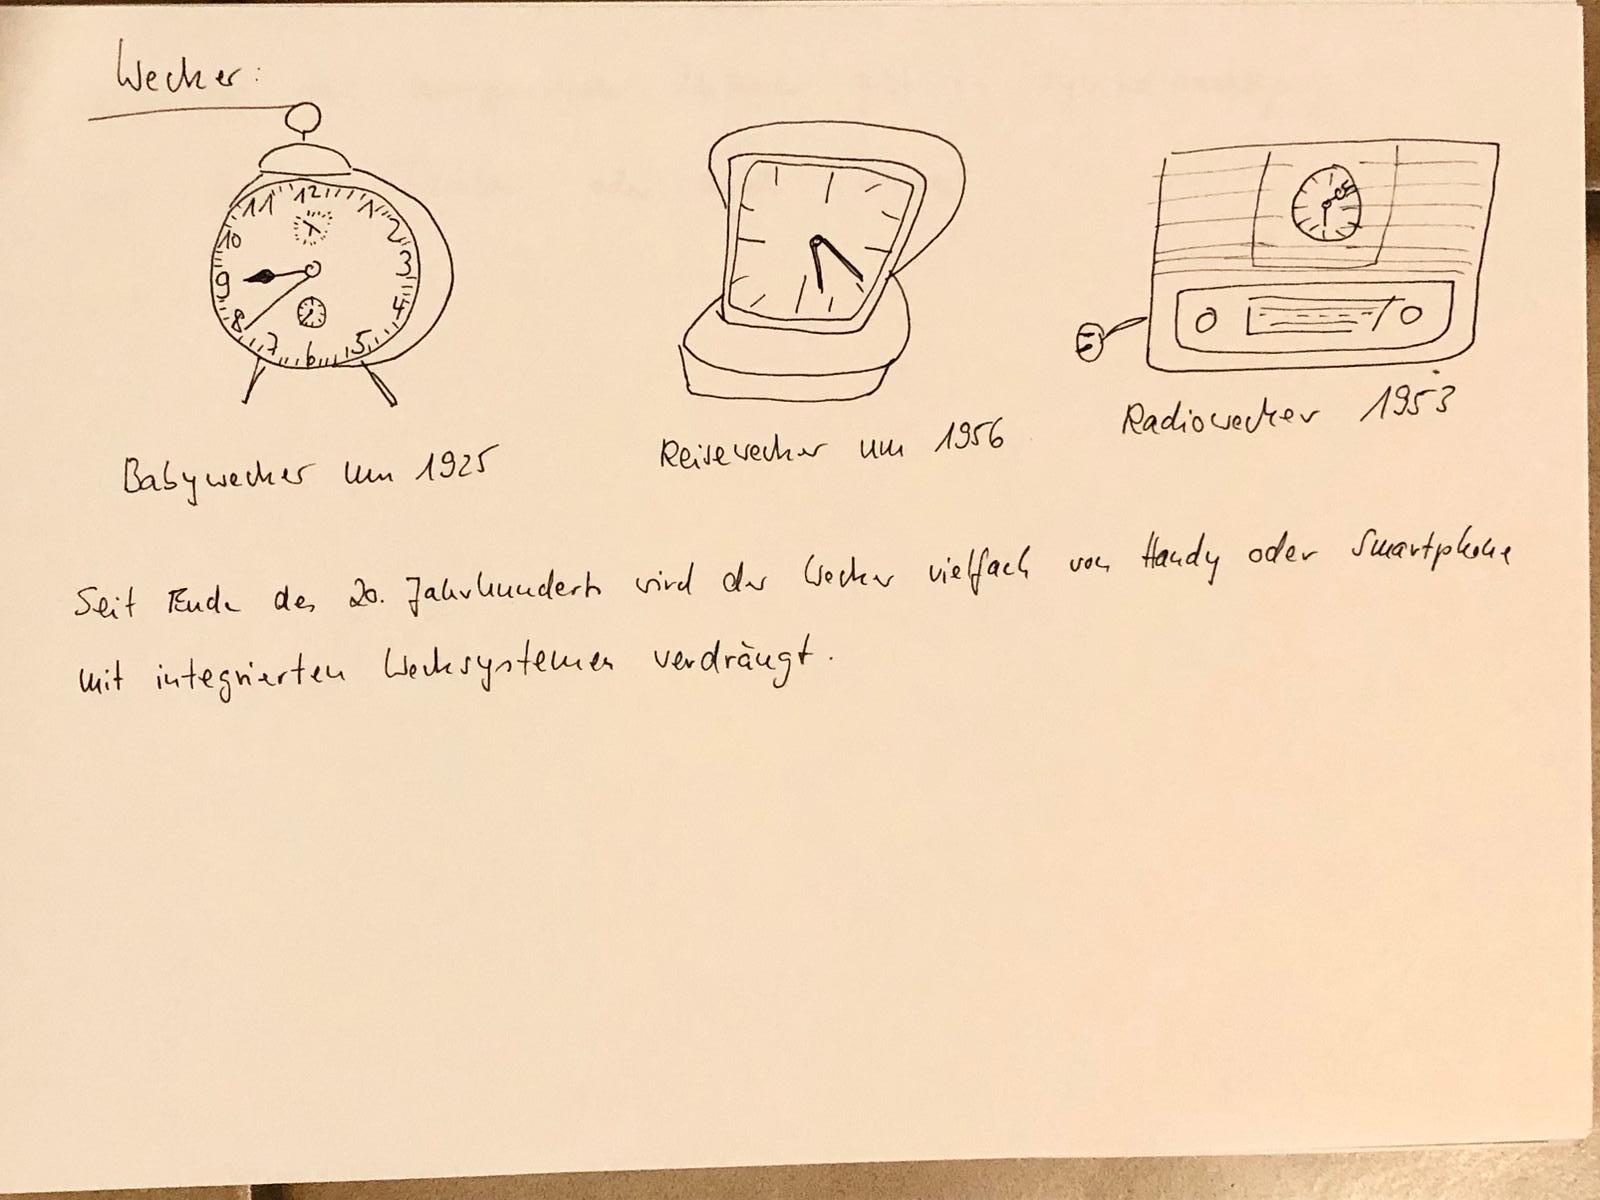 Wecker:
12
11
1
10
2
9
3
8
4
7
5
6
Babywecker um 1925
Reisewecker um 1956
Radiowecker 1953
Seit Ende des 20. Jahrhunderts wird der Wecker vielfach von Handy oder Smartphone
mit integrierten Wecksystemen verdrängt.